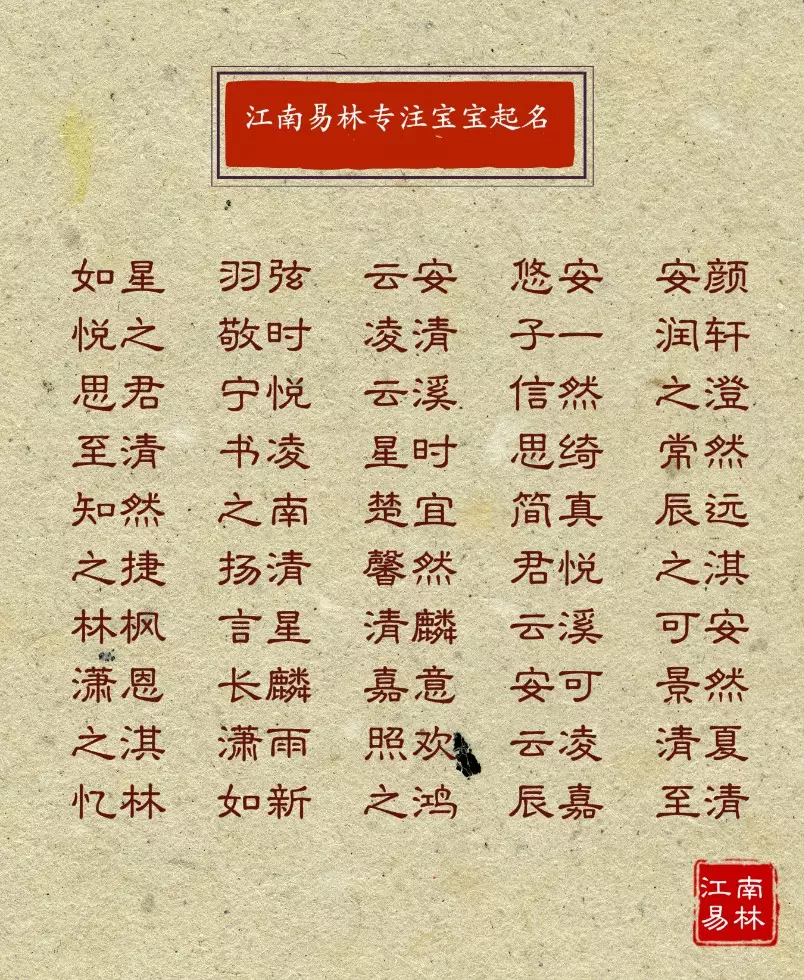 江南易林专注宝宝起名
如星 羽弦 云安 悠安 安颜
悦之 敬时 凌清 子一 润轩
思君 宁悦 云溪 信然 之澄
至清 书凌 星时 思绮 常然
知然 之南 楚宜 简真 辰远
之捷 扬清 馨然 君悦 之淇
林枫 言星 清麟 云溪 可安
潇恩 长麟 嘉意 安可 景然
之淇 潇雨 照欢 云凌 清夏
忆林 如新 之鸿 辰嘉 至清
江南
易林